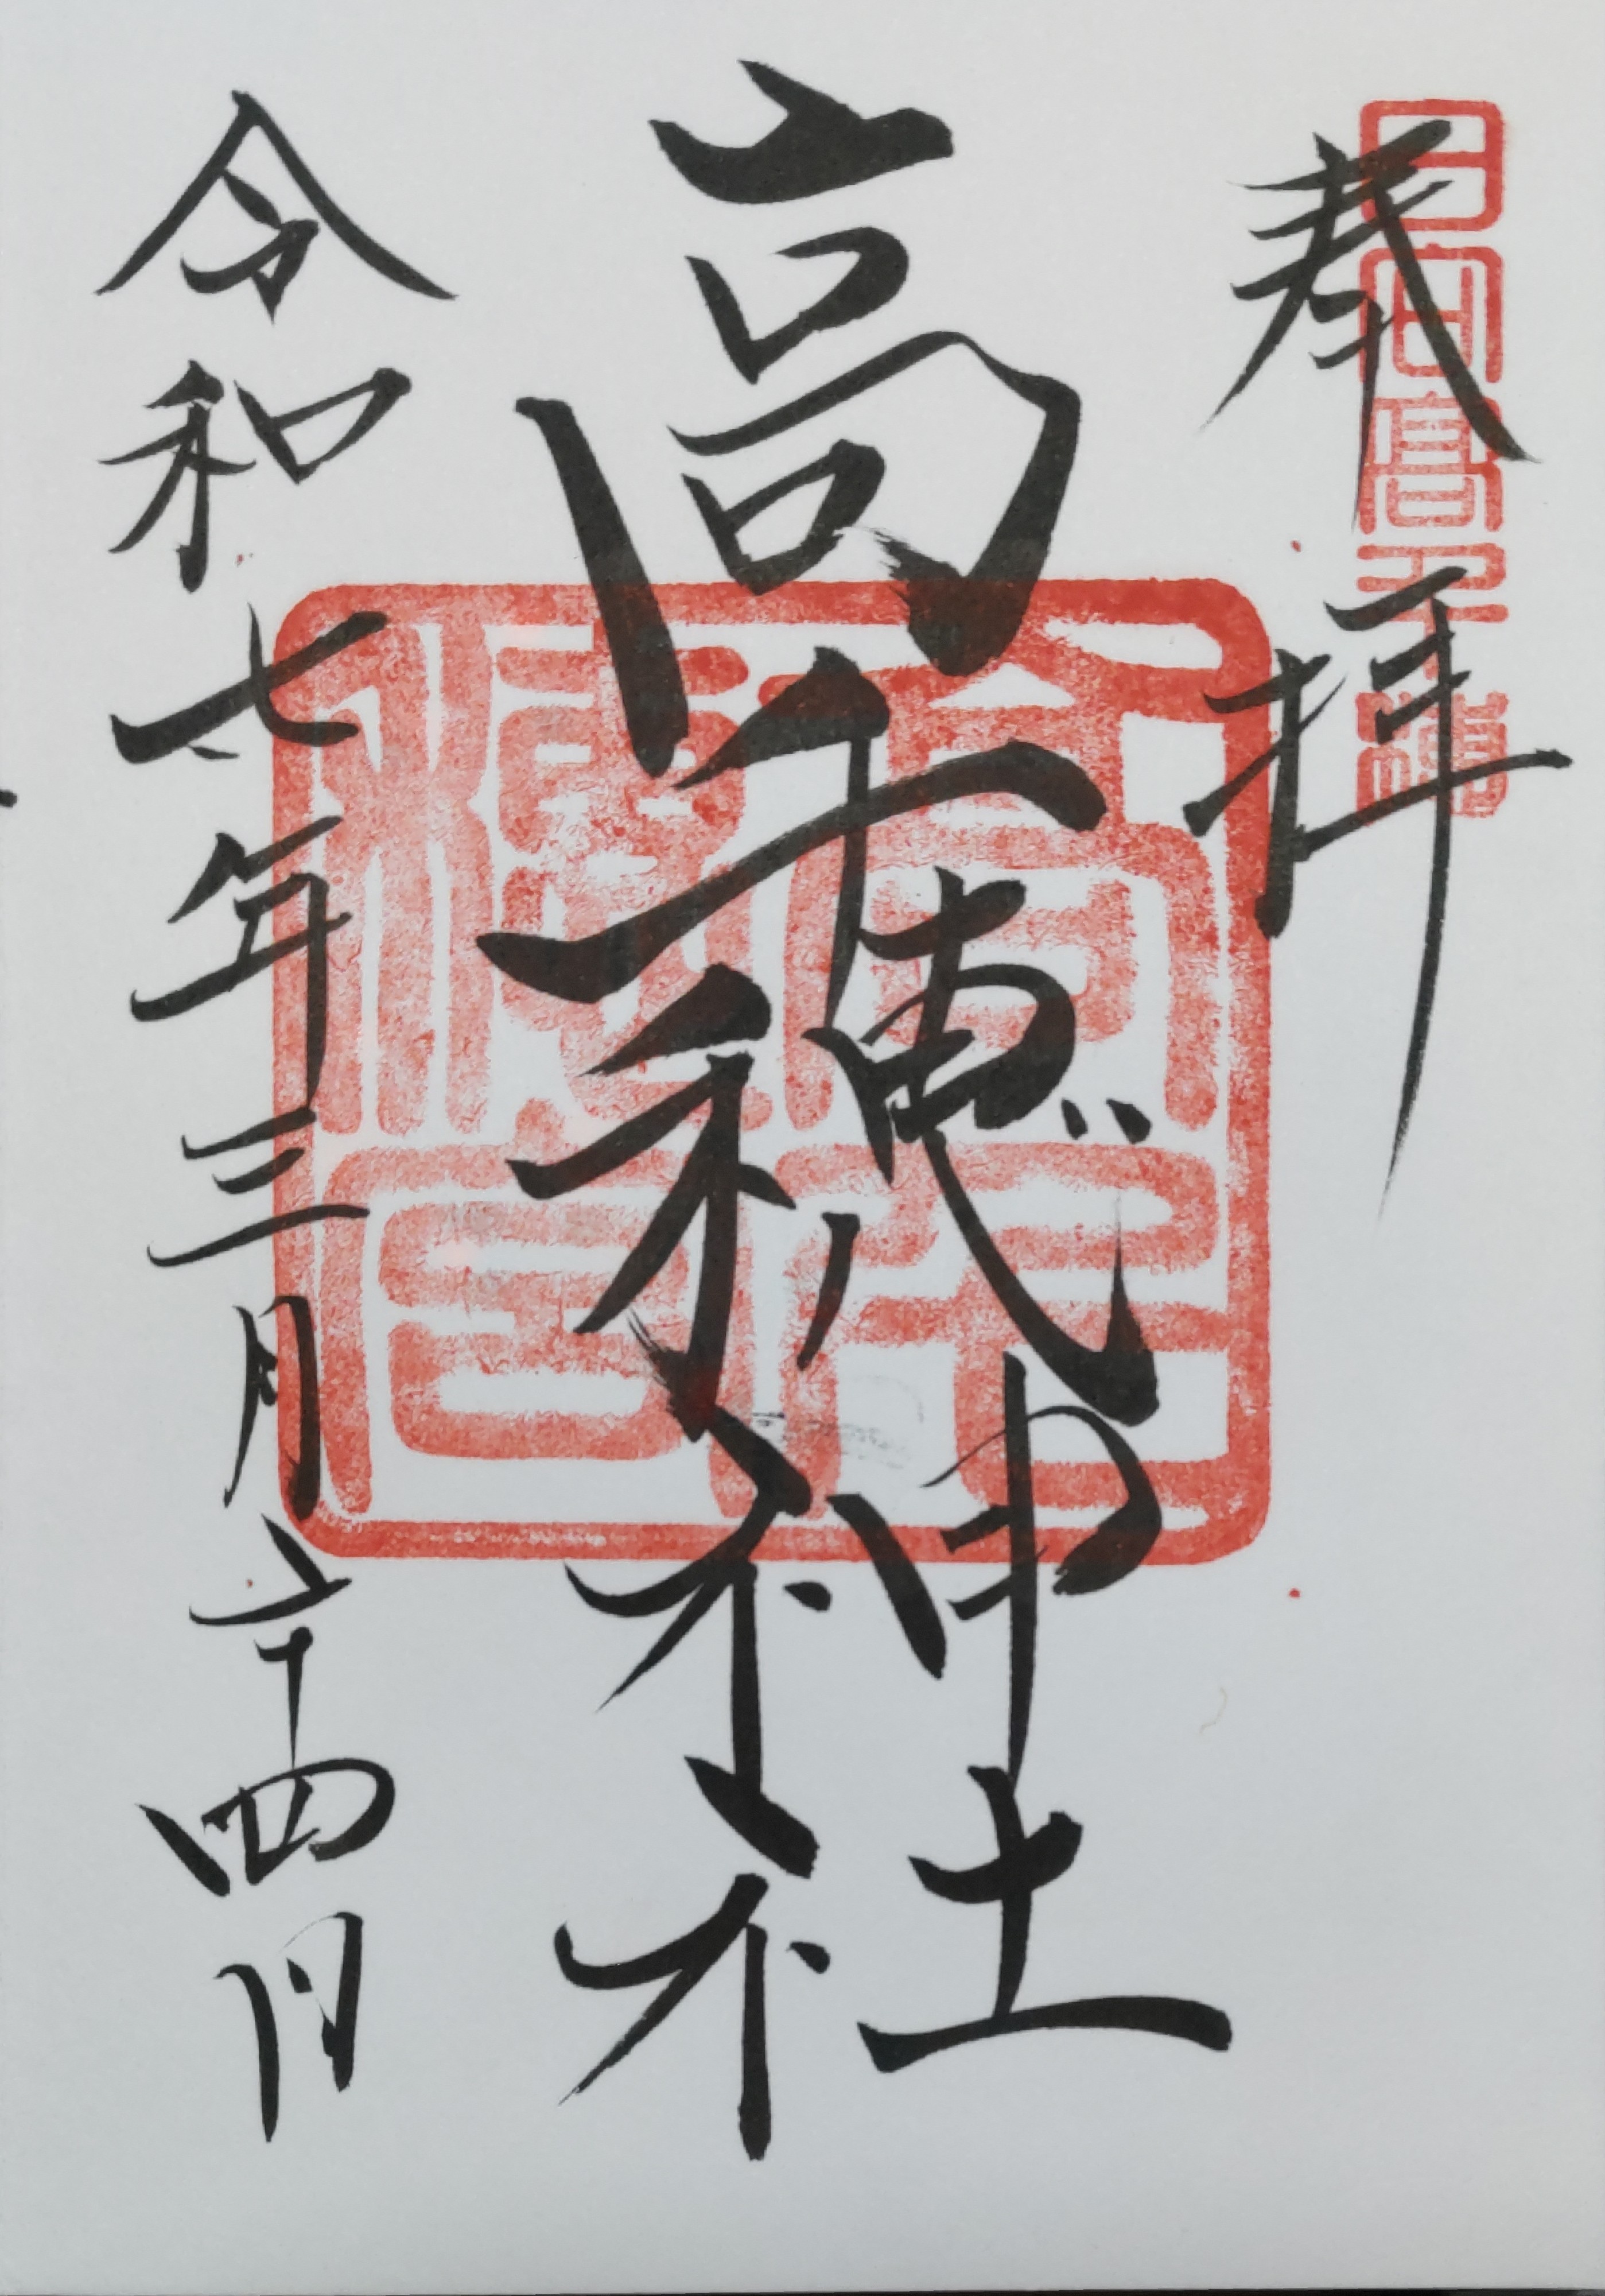 日向高千穂
奉拝
高千穂神社
令和七年三月二十四日